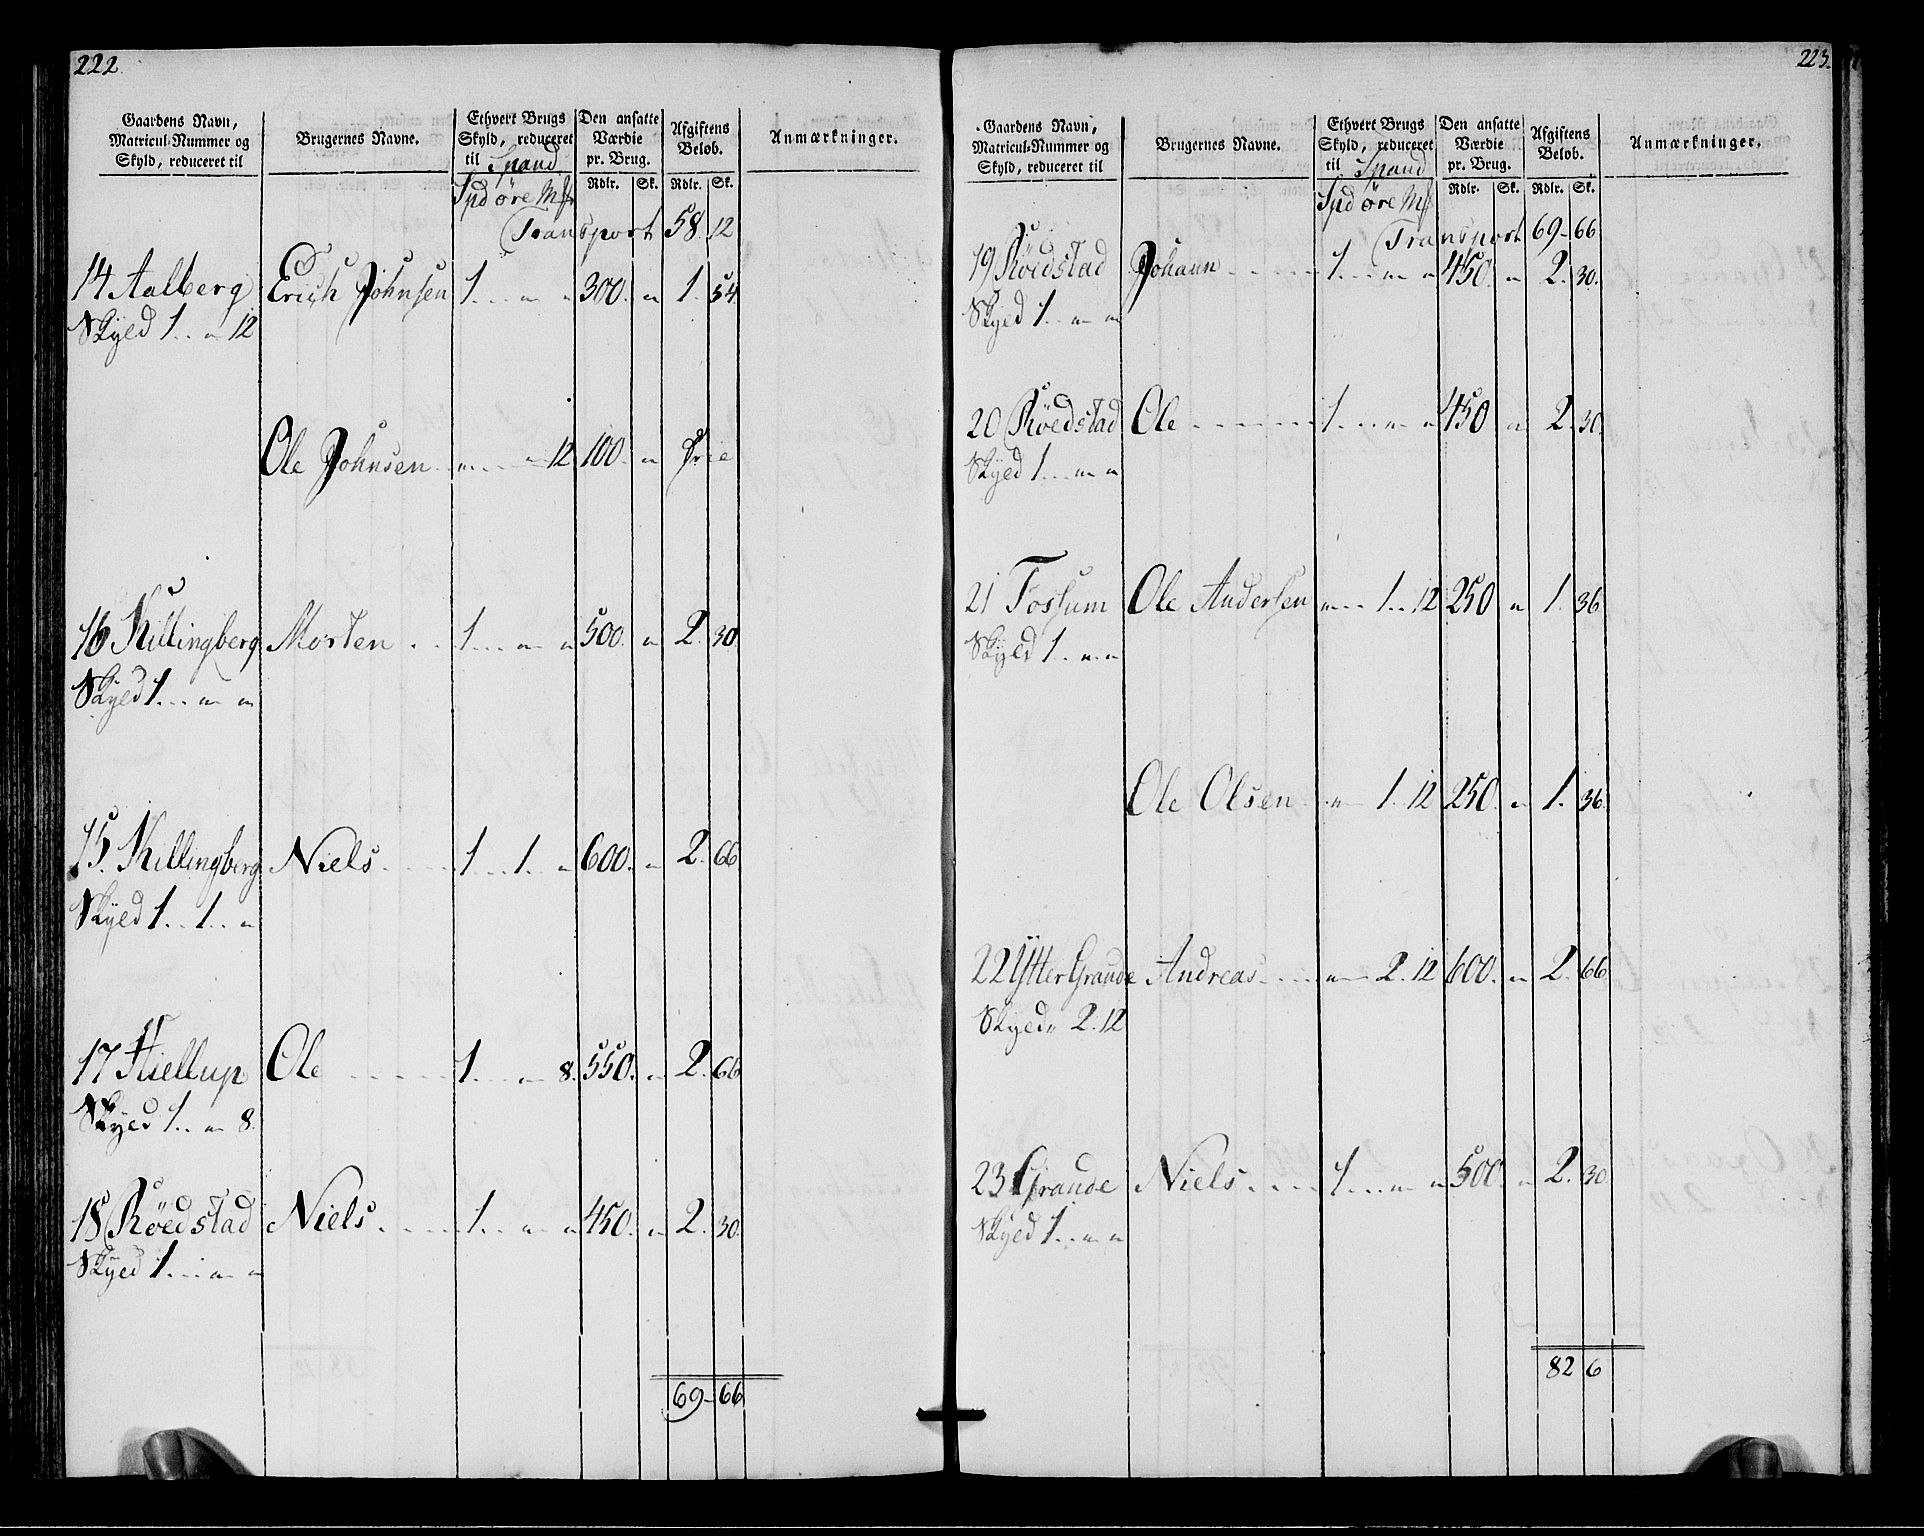 222
Gaardens Navn, Matricul-Nummer og Skyld, reduceret til | Brugernes Navne. | Ethvert Brugs Skyld, reduceret til Spand | Den ansatte Værdie pr. Brug. | Afgiftens Beløb. | Anmærkninger.
Spd Øre Mk | Rdlr. | Sk. | Rdlr. | Sk.
Transport 58. 12
14 Aalberg Erich Johnsen 1. . . " " 300. " 1. 54
Skyld 1. . " 12
Ole Johnsen " . . . " 12 100. " Frie
16 Killingberg Morten . . 1. . . " " 500. " 2. 30
Skyld 1. . . " "
15. Killingberg Niels . . . . 1. . 1. . " 600. " 2. 66
Skyld 1. . 1. . "
17 Hiellup Ole . . . . . 1. . . " 8. 550. " 2. 66
Skyld 1. . " 8.
18 Röedstad Niels . . . . . 1. . " " 450. " 2. 30.
Skyld 1. . . " "
69 - 66
223.
Gaardens Navn, Matricul-Nummer og Skyld, reduceret til | Brugernes Navne. | Ethvert Brugs Skyld, reduceret til Spand | Den ansatte Værdie pr. Brug. | Afgiftens Beløb. | Anmærkninger.
Spd Øre Mk | Rdlr. | Sk. | Rdlr. | Sk.
Transport 69 - 66
19 Röedstad Johann . . . . . 1. . . " " 450. " 2. 30.
Skyld 1. . " "
20 Röedstad Ole . . . . . . 1. . . " " 450 " 2. 30.
Skyld 1. . . " "
21 Fossum Ole Andersen " . . . 1. . 12 250 " 1. 36
Skyld 1. . " "
Ole Olsen . . " 1. 12 250. " 1. 36
22 Ytter Grande Andreas . . . . " 2. 12 600. " 2. 66
Skyld " 2. 12
23 Grande Niels . . . . 1. . . " " 500. " 2. 30.
Skyld 1. . " "
82 6